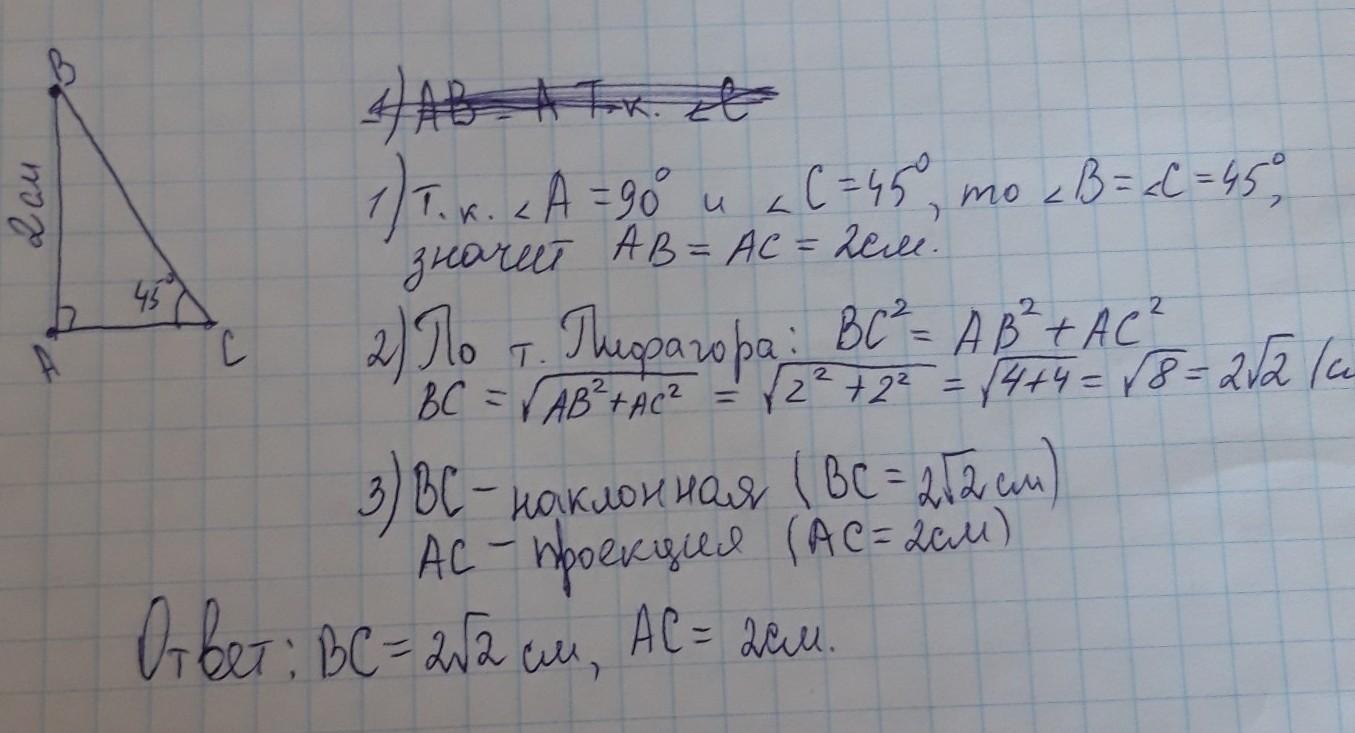 B
2 см
45°
A
C
1) Т.к. ∠A = 90° и ∠C = 45°, то ∠B = ∠C = 45°,
значит AB = AC = 2см.
2) По т. Пифагора: BC² = AB² + AC²
BC = √AB²+AC² = √2²+2² = √4+4 = √8 = 2√2 (с
3) BC – наклонная (BC = 2√2 см)
AC – проекция (AC = 2см)
Ответ: BC = 2√2 см, AC = 2см.